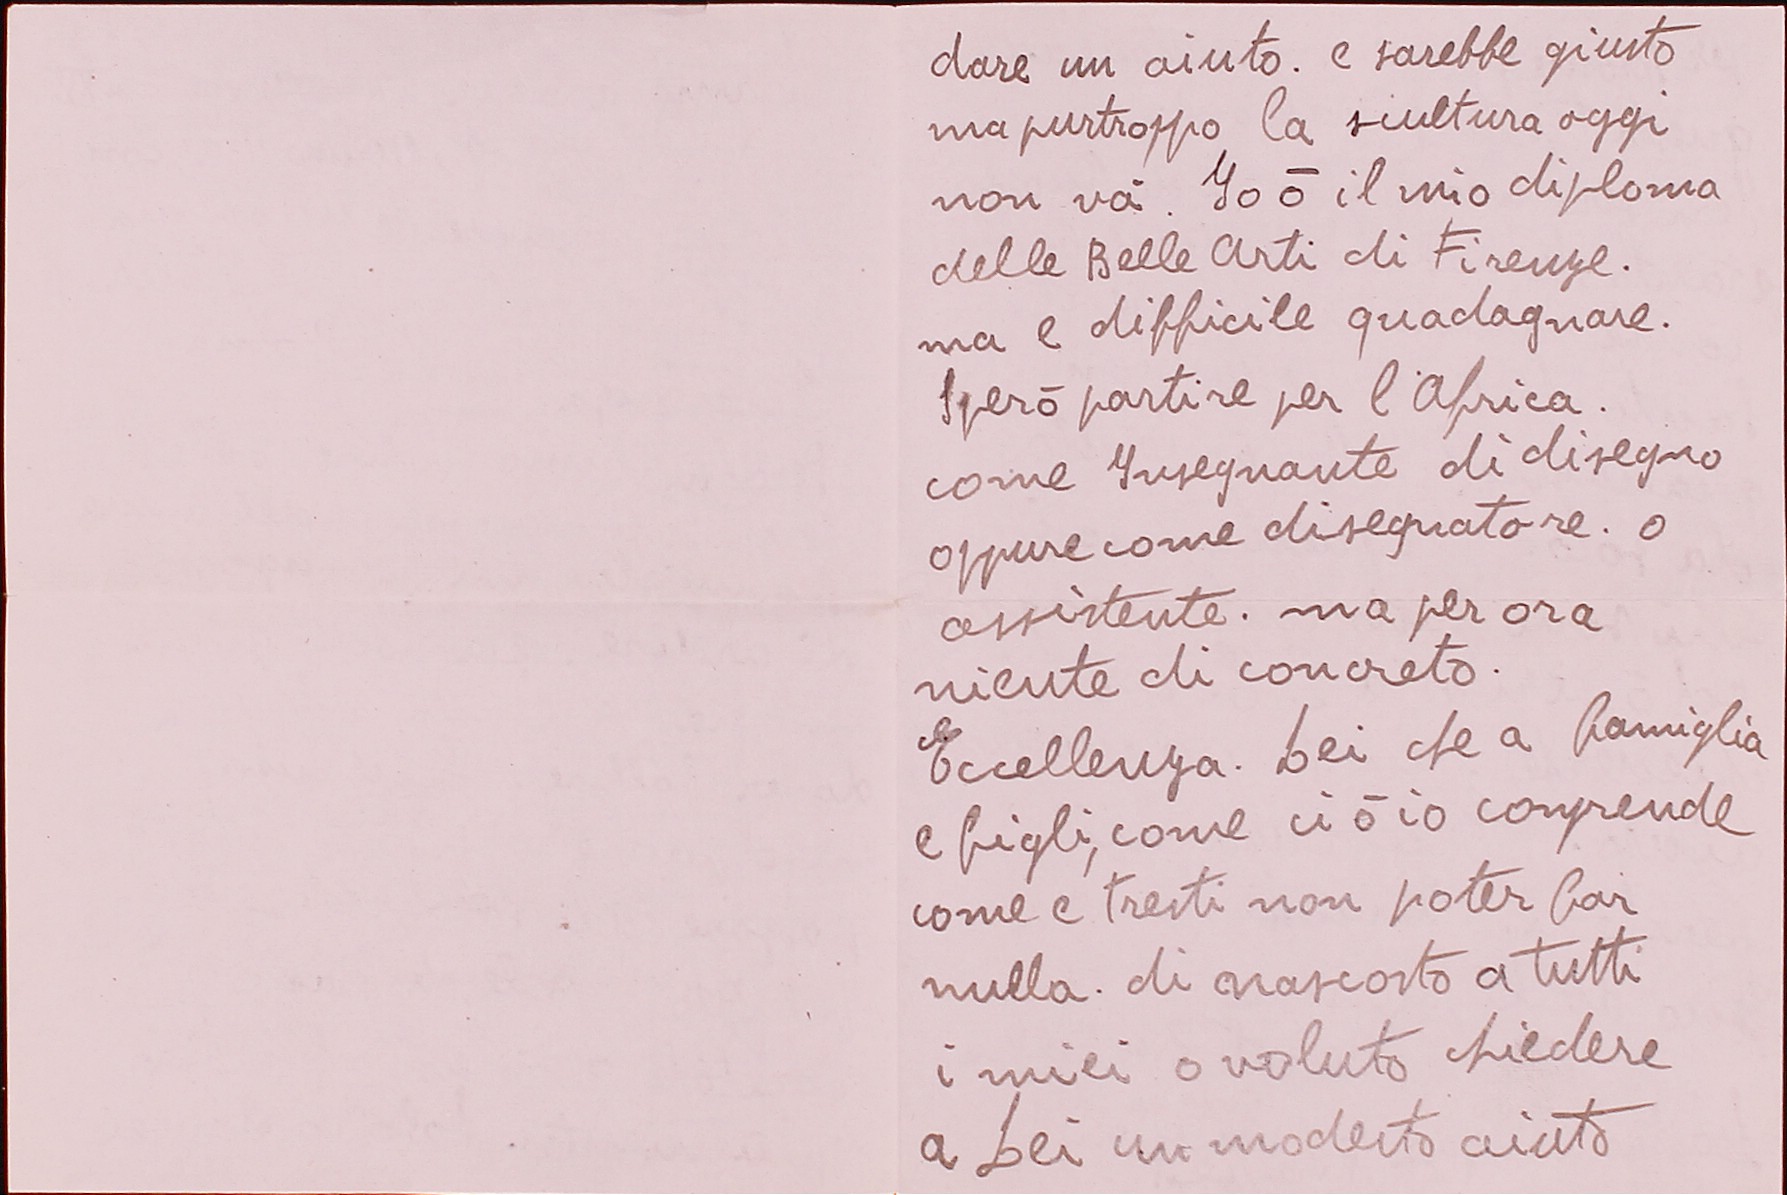 dare un aiuto. e sarebbe giusto
ma purtroppo la scultura oggi
non và. Io ō il mio diploma
delle Belle Arti di Firenze.
ma e difficile quadagnare.
Sperō partire per l'Africa.
come Insegnante di disegno
oppure come disegnatore. o
assistente. ma per ora
niente di concreto.
Eccellenza. Lei che a famiglia
e figli, come ci ō io comprende
come e tresti non poter far
nulla. di nascosto a tutti
i miei o voluto chiedere
a Lei un modesto aiuto